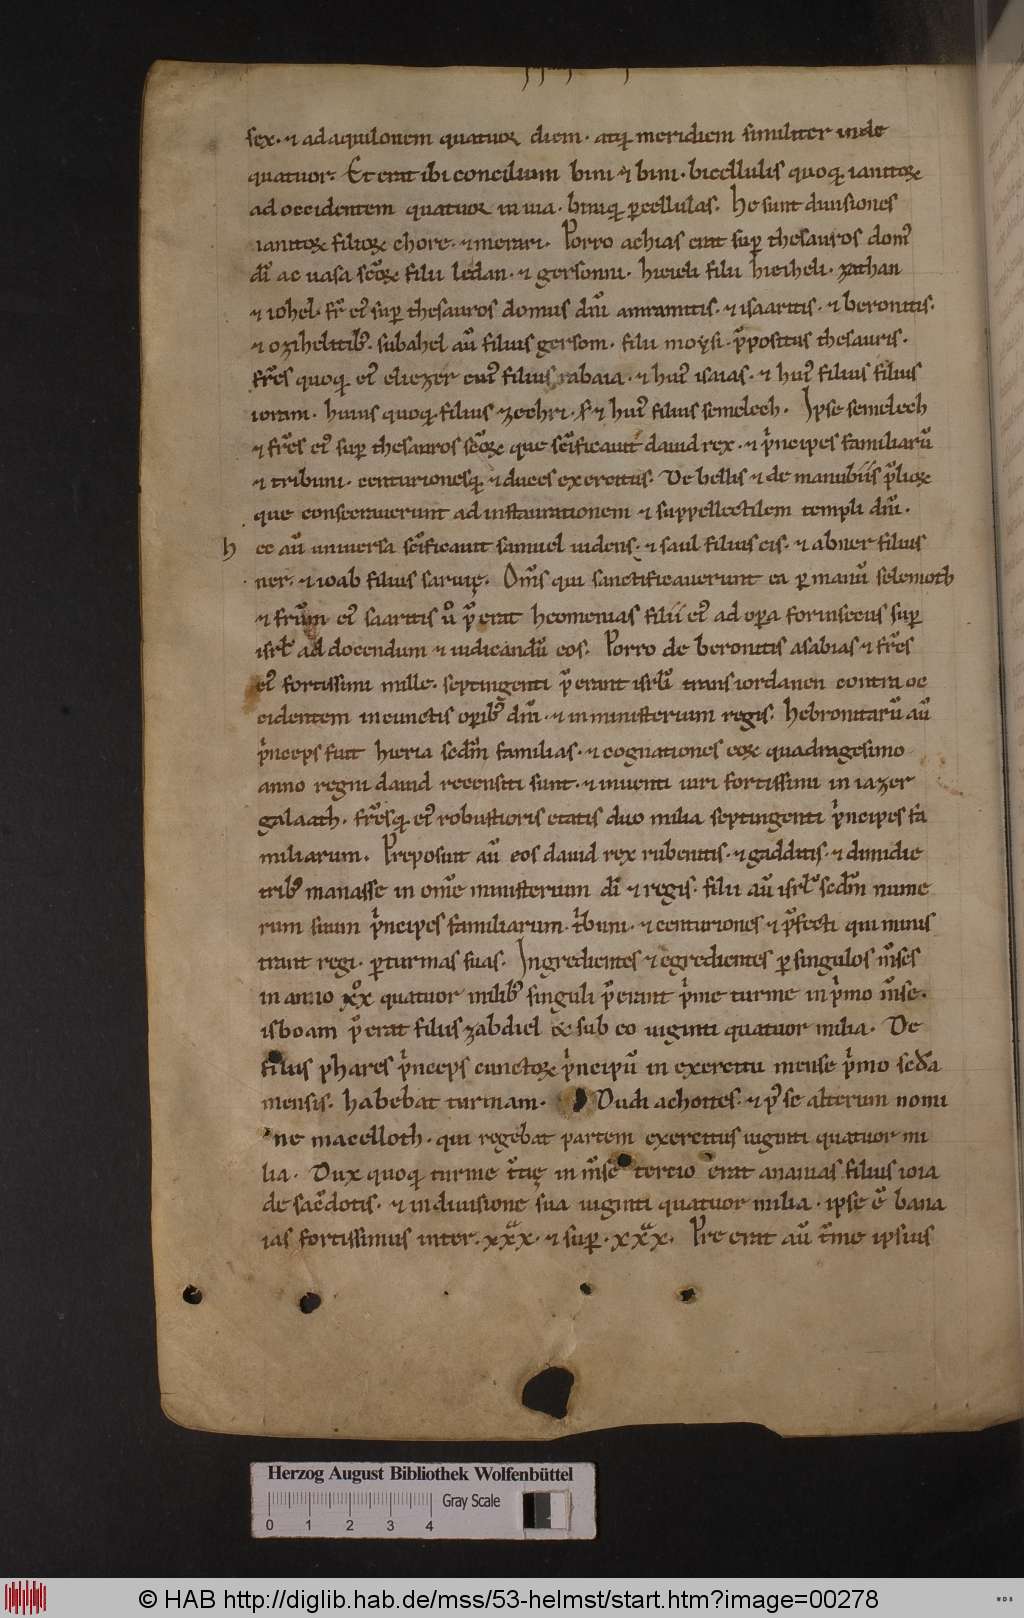 sex. ⁊ ad aquilonem quatuor diem. atq̨ meridiem similiter inde
quatuor. Et erat ibi concilium bini ⁊ bini. bicellulis quoq̨ ianitoꝝ
ad occidentem quatuor in uia. biniq̨ ꝑcellulas. He sunt diuisiones
ianitoꝝ filioꝝ chore. ⁊ merari. Porro achias erat suꝑ thesauros dom᷒
dī ac uasa scōꝝ filii ledan. ⁊ gersonni. hieieli filii hieiheli. zathan
⁊ iohel. fr̄ ei᷒ suꝑ thesauros domus dn̄i amramitis. ⁊ isaaritis. ⁊ beronitis.
⁊ ozihelitib᷒. subahel aū filius gersom. filii moẏsi. p̄positus thesauris.
fr̄es quoq̨ ei᷒ eliezer cui᷒ filius rabaia. ⁊ hui᷒ isaias. ⁊ hui᷒ filius filius
ioram. huius quoq̨ filius zechri. s; ⁊ hui᷒ filius semelech. Ipse semelech
⁊ fr̄es ei᷒ suꝑ thesauros scōꝝ que sc̄ificauit dauid rex. ⁊ pͥncipes familiarū
⁊ tribuni. centurionesq̨ ⁊ duces exercitus. De bellis ⁊ de manubiis p̄lioꝝ
que consecrauerunt ad instaurationem ⁊ suppellectilem templi dn̄i.
h ec aū uniuersa sc̄ificauit samuel uidens. ⁊ saul filius cis. ⁊ abner filius
ner. ⁊ ioab filius saruię. Om̄s qui sanctificauerunt ea ꝑ manū selemoth
⁊ frūm ei᷒ saaritis uͦ p̄erat hcomenias filii ei᷒ ad oꝑa forinsecus suꝑ
isrl̄ ad docendum ⁊ iudicandū eos. Porro de beronitis asabias ⁊ fr̄es
ei᷒ fortissimi mille. septingenti p̄erant isrl̄i trans iordanen contra oc
cidentem in cunctis oꝑib᷒ dn̄i. ⁊ in ministerium regis. Hebronitarū aū
pͥnceps fuit hieria scdm̄ familias. ⁊ cognationes eoꝝ quadragesimo
anno regni dauid recensiti sunt. ⁊ inuenti uiri fortissimi in iazer
galaath. fr̄esq̨ ei᷒ robustioris etatis duo milia septingenti pͥncipes fa
miliarum. Preposuit aū eos dauid rex rubenitis. ⁊ gadditis. ⁊ dimidie
trib᷒ manasse in om̄e ministerium dī ⁊ regis. filii aū isrl̄ scdm̄ nume
rum suum pͥncipes familiarum. tͥbuni. ⁊ centuriones ⁊ p̄fecti qui minis
trant regi. ꝑ turmas suas. Ingredientes ⁊ egredientes ꝑ singulos m̄ses
in anno xͦx quatuor milib᷒ singuli p̄erant pͥme turme in pͥmo m̄se.
isboam p̄erat filius zabdiel & sub eo uiginti quatuor milia. De
filius phares pͥnceps cunctoꝝ pͥncipū in exercitu mense pͥmo scd̄a
mensis. habebat turmam. Dudi achoites. ⁊ p᷒ se alterum nomi
ne macelloth. qui regebat partem exercitus uiginti quatuor mi
lia. Dux quoq̨ turme t̄tię in m̄se tertio erat ananias filius ioia
de sac̄dotis. ⁊ in diuisione sua uiginti quatuor milia. ipse ē bana
ias fortissimus inter. xxͣx. ⁊ suꝑ. xxͣx. Pre erat aū t̄me ipsius
Herzog August Bibliothek Wolfenbüttel
Gray Scale
0 1 2 3 4
© HAB http://diglib.hab.de/mss/53-helmst/start.htm?image=00278